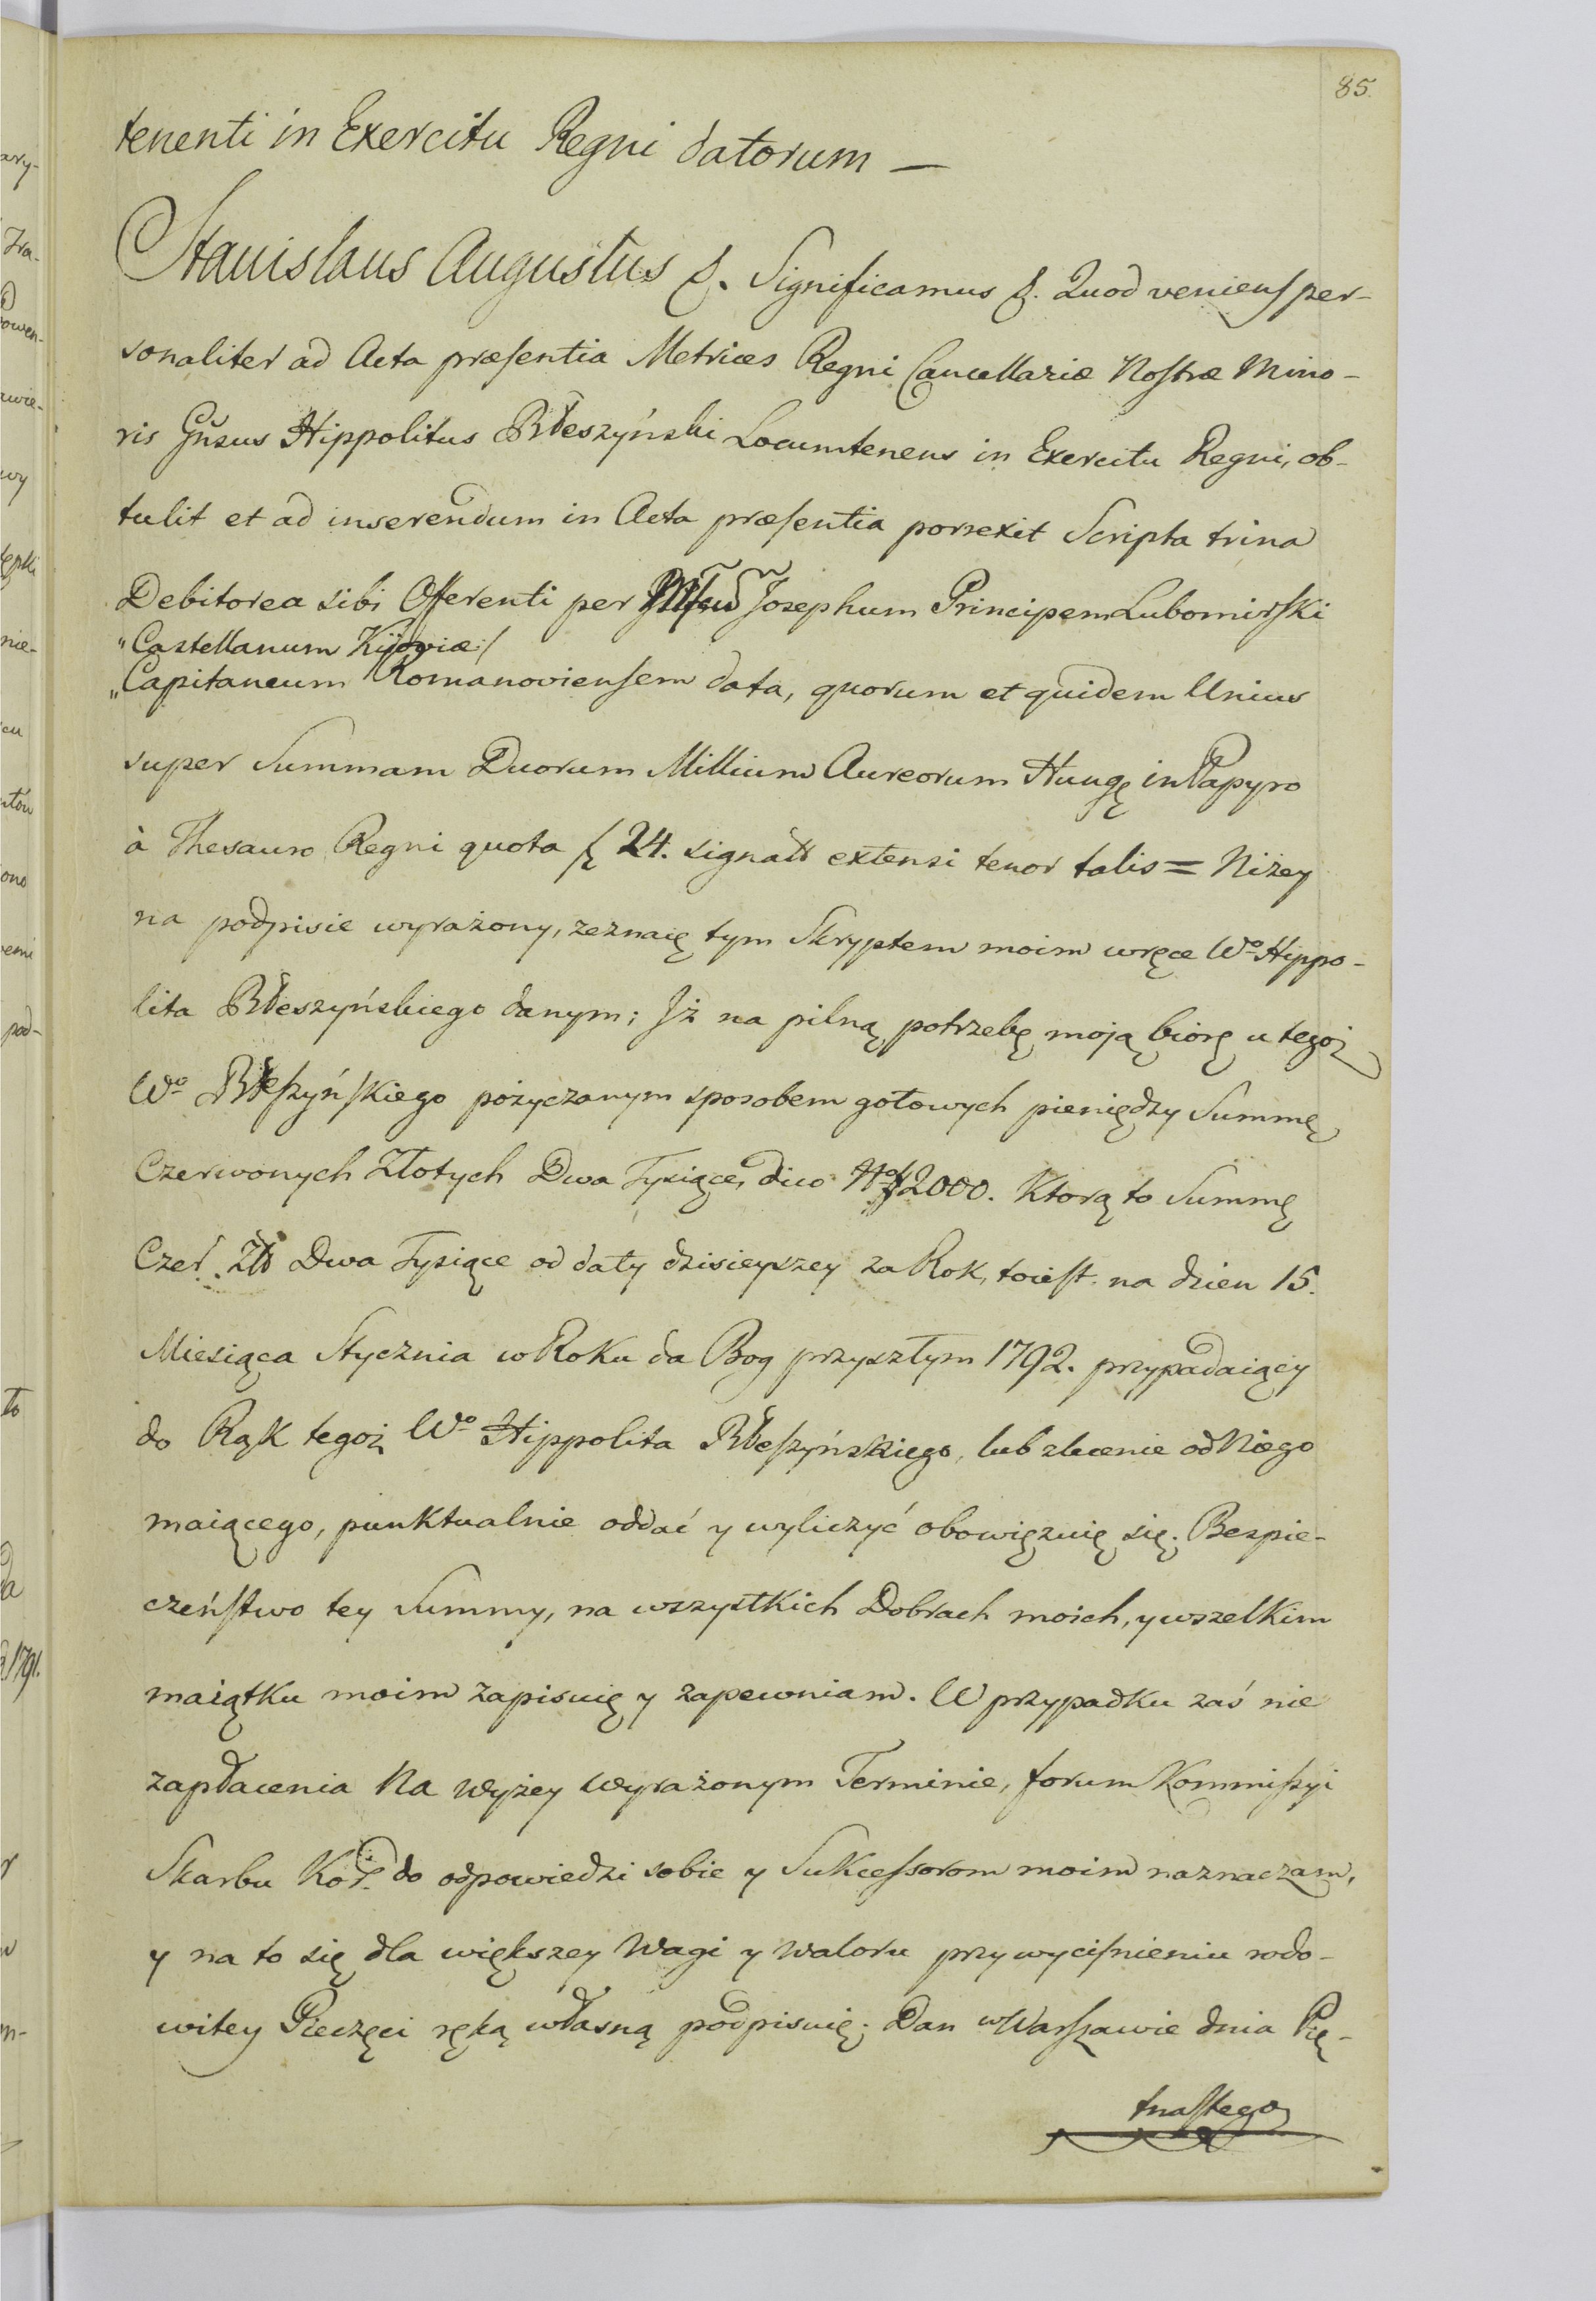 85.
tenenti in Exercitu Regni datorum —
Stanislaus Augustus &. Significamus &. Quod veniens per-
sonaliter ad Acta præsentia Metrices Regni Cancellariæ Nostræ Mino-
ris Gnsus Hippolitus Błeszyński Locumtenens in Exercitu Regni, ob-
tulit et ad inserendum in Acta præsentia porrexit Scripta trina
Debitorea sibi Offerenti per Josephum Principem Lubomirski
"Castellanum Kijoviæ:/
"Capitaneum Romanoviensem data, quorum et quidem Unius
super Summam Duorum Millium Aureorum Hung in Papyro
à Thesauro Regni quota f 24. signatt extensi tenor talis = Niżey
na podpisie wyrażony, zeznaię tym Skryptem moim w ręce Wo Hippo-
lita Błeszyńskiego danym; Iż na pilną potrzebę moją biorę u tegoż
Wo Błeszyńskiego pożyczanym sposobem gotowych pieniędzy Summę
Czerwonych Złotych Dwa Tysiące, dico 2000. Którą to Summę
Czer. Złł Dwa Tysiące od daty dzisieyszey za Rok, toiest na dzien 15.
Miesiąca Stycznia w Roku da Bog przyszłym 1792. przypadaiący
do Rąk tegoż Wo Hippolita Błeszyńskiego, lub zlecenie od Niego
maiącego, punktualnie oddać y wyliczyć obowięzuię się. Bezpie-
czeństwo tey Summy, na wszystkich Dobrach moich, y wszelkim
maiątku moim zapisuię y zapewniam. W przypadku zaś nie
zapłacenia Na wyżey wyrażonym Terminie, forum Kommissyi
Skarbu Kor. do odpowiedzi sobie y Sukcessorom moim naznaczam,
y na to się dla większey Wagi y Waloru przy wyciśnieniu rodo-
witey Pieczęci ręką własną podpisuię. Dan w Warszawie dnia Pię-
tnastego